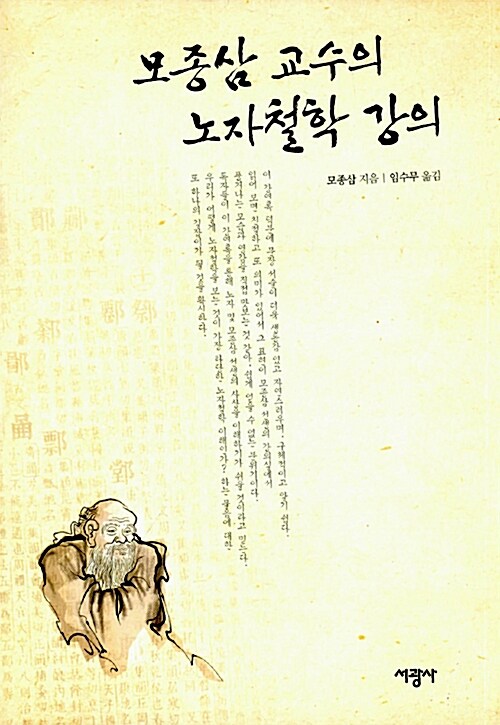 모종삼 교수의
노자철학 강의
모종삼 지음 | 임수무 옮김
이 강의록 덕분에 문장 서술이 더욱 생동감 있고 자연스러우며, 구체적이고 알기 쉽다.
읽어 보면 친절하고 또 의미가 있어서 그 표현이 모종삼 선생의 강의실에서
풍겨나는 모습과 영감을 직접 맛보는 것 같아, 쉽게 얻을 수 없는 분위기이다.
독자들이 이 강의록을 통해 노자 및 모종삼 선생의 사상을 이해하기가 쉬울 것이라고 믿는다.
우리가 어떻게 노자철학을 보는 것이 가장 타당한 노자철학 이해인가? 하는 물음에 대한
또 하나의 길잡이가 될 것을 확신하다.
서광사